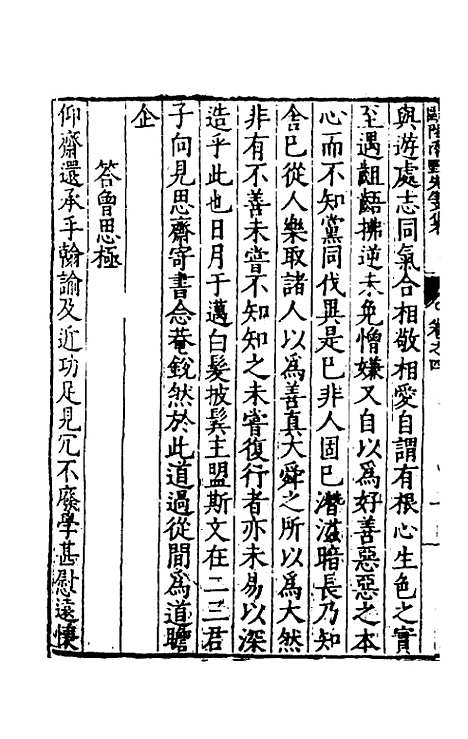 歐陽南野先生文集　卷之四
與遊處志同氣合相敬相愛自謂有根心生色之實
至遇齟齬拂逆未免憎嫌又自以爲好善惡惡之本
心而不知黨同伐異是已非人固已潛滋暗長乃知
舍已從人樂取諸人以爲善真大舜之所以爲大然
非有不善未嘗不知知之未嘗復行者亦未易以深
造乎此也日月于邁白髮披鬂主盟斯文在二三君
子向見思齋寄書念菴銳然於此道過從間爲道瞻
企
答曾思極
仰齋還承手翰諭及近功足見冗不廢學甚慰遠懐